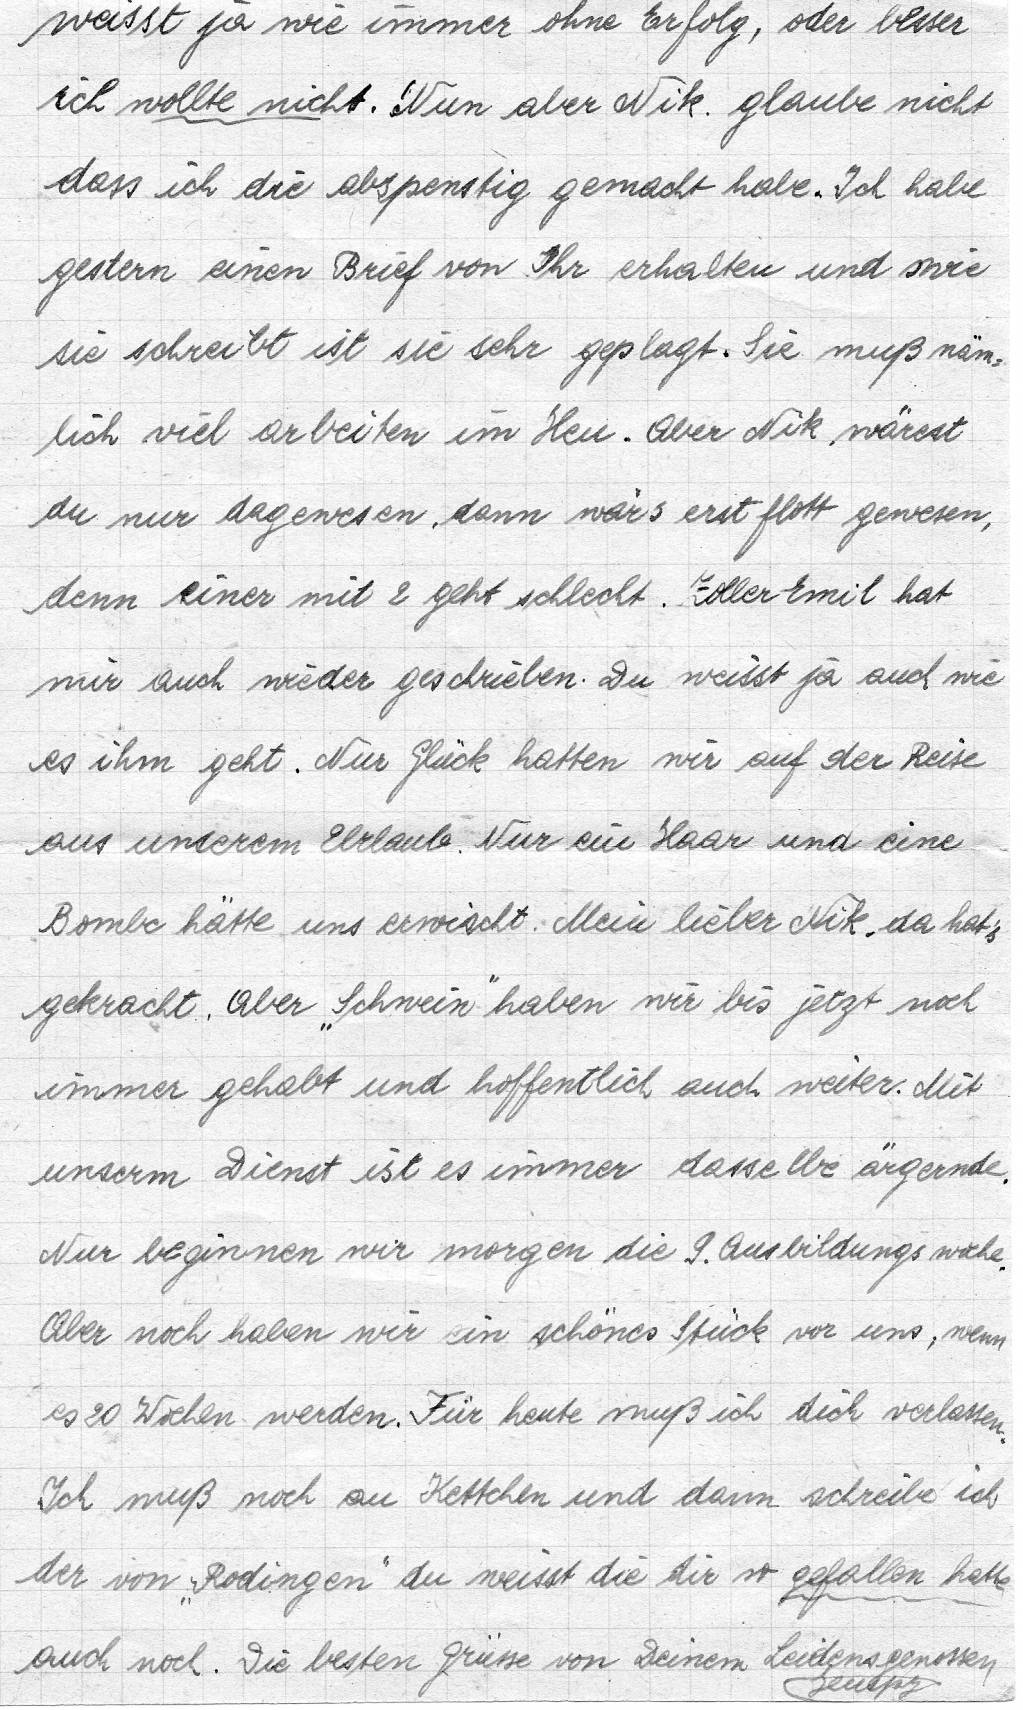 weisst ja wie immer ohne Erfolg, oder besser
ich wollte nicht. Nun aber Nik. glaube nicht
dass ich die abspenstig gemacht habe. Ich habe
gestern einen Brief von Ihr erhalten und wie
sie schreibt ist sie sehr geplagt. Sie muß näm=
lich viel arbeiten im Heu. Aber Nik wärest
du nur dagewesen, dann wär's erst flott gewesen,
denn einer mit 2 geht schlecht. Zoller Emil hat
mir auch wieder geschrieben. Du weisst ja auch wie
es ihm geht. Nur Glück hatten wir auf der Reise
aus unserem Urlaub. Nur ein Haar und eine
Bombe hätte uns erwischt. Mein lieber Nik. da hat's
gekracht. Aber „Schwein" haben wir bis jetzt noch
immer gehabt und hoffentlich auch weiter. Mit
unserm Dienst ist es immer dasselbe ärgernde.
Nur beginnen wir morgen die 9. Ausbildungswoche.
Aber noch haben wir ein schönes Stück vor uns, wenn
es 20 Wochen werden. Für heute muß ich dich verlassen.
Ich muß noch an Kettchen und dann schreibe ich
der von „Rodingen" du weisst die dir so gefallen hatte
auch noch. Die besten Grüsse von Deinem Leidensgenossen